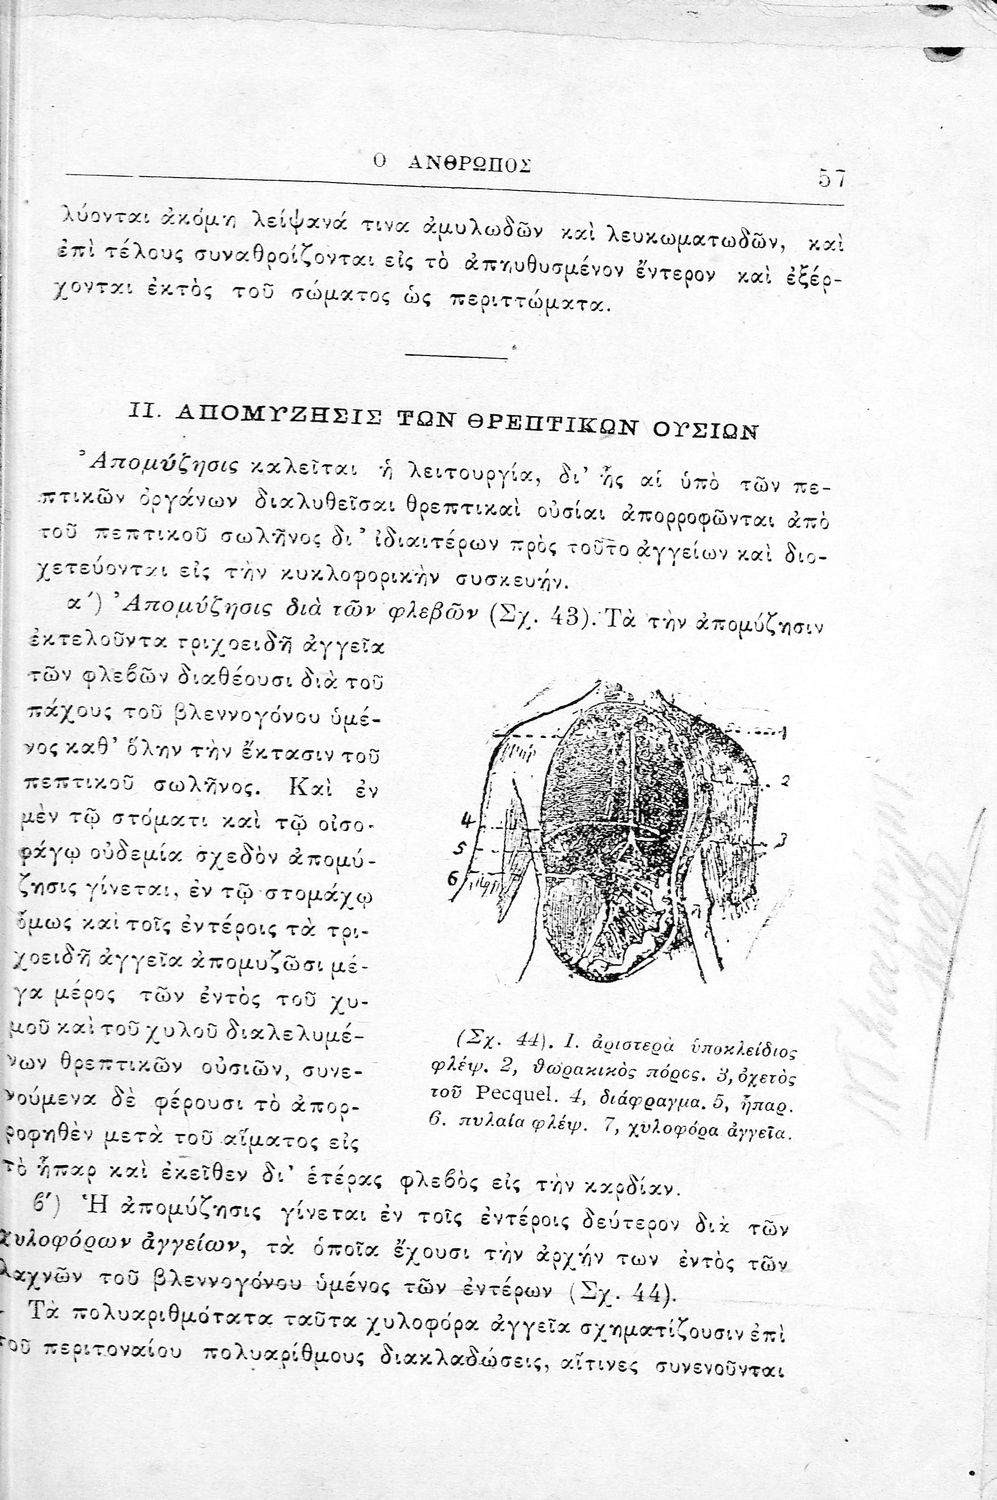 Ο ΑΝΘΡΩΠΟΣ
57
λύονται ἀκόμη λείψανά τινα ἀμυλωδῶν καὶ λευκωματωδῶν, καὶ
ἐπὶ τέλους συναθροίζονται εἰς τὸ ἀπηυθυσμένον ἔντερον καὶ ἐξέρ-
χονται ἐκτὸς τοῦ σώματος ὡς περιττώματα.
ΙΙ. ΑΠΟΜΥΖΗΣΙΣ ΤΩΝ ΘΡΕΠΤΙΚΩΝ ΟΥΣΙΩΝ
Ἀπομύζησις καλεῖται ἡ λειτουργία, δι' ἧς αἱ ὑπὸ τῶν πε-
πτικῶν ὀργάνων διαλυθεῖσαι θρεπτικαὶ οὐσίαι ἀπορροφῶνται ἀπὸ
τοῦ πεπτικοῦ σωλῆνος δι' ἰδιαιτέρων πρὸς τοῦτο ἀγγείων καὶ διο-
χετεύονται εἰς τὴν κυκλοφορικὴν συσκευήν.
α') Ἀπομύζησις διὰ τῶν φλεβῶν (Σχ. 43). Τὰ τὴν ἀπομύζησιν
ἐκτελοῦντα τριχοειδῆ ἀγγεῖα
τῶν φλεβῶν διαθέουσι διὰ τοῦ
πάχους τοῦ βλεννογόνου ὑμέ-
νος καθ' ὅλην τὴν ἔκτασιν τοῦ
πεπτικοῦ σωλῆνος. Καὶ ἐν
μὲν τῷ στόματι καὶ τῷ οἰσο-
φάγῳ οὐδεμία σχεδὸν ἀπομύ-
ζησις γίνεται, ἐν τῷ στομάχῳ
ὅμως καὶ τοῖς ἐντέροις τὰ τρι-
χοειδῆ ἀγγεῖα ἀπομυζῶσι μέ-
γα μέρος τῶν ἐντὸς τοῦ χυ-
μοῦ καὶ τοῦ χυλοῦ διαλελυμέ-
νων θρεπτικῶν οὐσιῶν, συνε-
νούμενα δὲ φέρουσι τὸ ἀπορ-
ροφηθὲν μετὰ τοῦ αἵματος εἰς
τὸ ἧπαρ καὶ ἐκεῖθεν δι' ἑτέρας φλεβὸς εἰς τὴν καρδίαν.
1
2
3
4
5
6
7
(Σχ. 44). 1. ἀριστερὰ ὑποκλείδιος
φλέψ. 2, θωρακικὸς πόρος. 3, ὀχετὸς
τοῦ Pecquel. 4, διάφραγμα. 5, ἧπαρ.
6. πυλαία φλέψ. 7, χυλοφόρα ἀγγεῖα.
β') Ἡ ἀπομύζησις γίνεται ἐν τοῖς ἐντέροις δεύτερον διὰ τῶν
χυλοφόρων ἀγγείων, τὰ ὁποῖα ἔχουσι τὴν ἀρχήν των ἐντὸς τῶν
λαχνῶν τοῦ βλεννογόνου ὑμένος τῶν ἐντέρων (Σχ. 44).
Τὰ πολυαριθμότατα ταῦτα χυλοφόρα ἀγγεῖα σχηματίζουσιν ἐπὶ
τοῦ περιτοναίου πολυαρίθμους διακλαδώσεις, αἵτινες συνενοῦνται